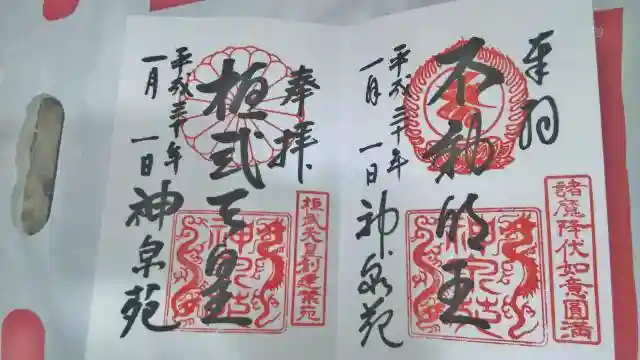 奉拝
不動明王
平成三十年
一月一日
神泉苑
諸魔降伏如意圓満
神泉苑
奉拝
桓武天皇
平成三十年
一月一日
神泉苑
桓武天皇創建禁苑
神泉苑